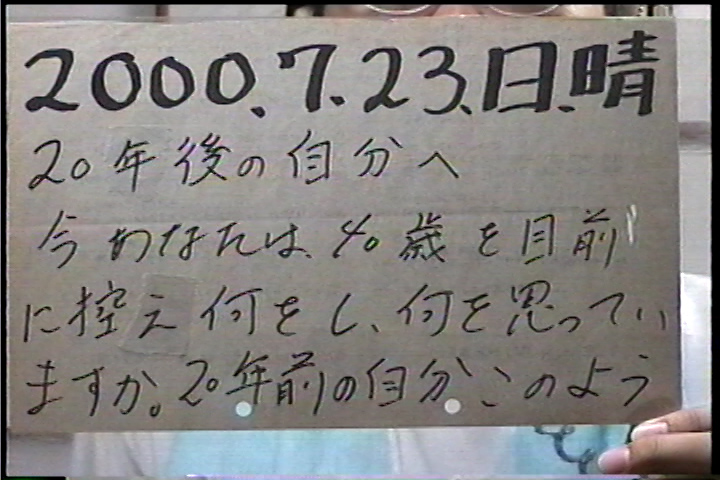 2000.7.23.日.晴
20年後の自分へ
今あなたは、40歳を目前
に控え何をし、何を思ってい
ますか。20年前の自分このよう